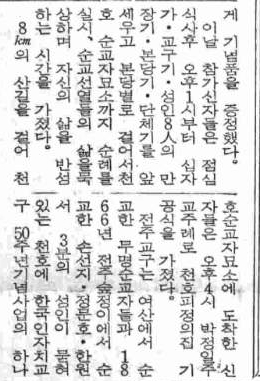 게 기념품을 증정했다.
이날 참가신자들은 점심
식사후 오후1시부터 십자
가·교구기·성인8人의 만
장기·본당기·단체기를 앞
세우고 본당별로 걸어서천
호 순교자묘소까지 순례를
실시, 순교선열들의 삶을묵
상하며 자신의 삶을 반성
하는 시간을 가졌다.
8km의 산길을 걸어 천
호순교자묘소에 도착한 신
자들은 오후4시 박정일주
교주례로 천호피정의집 기
공식을 가졌다.
전주교구는 여산에서 순
교한 무명순교자들과 18
66년 전주숲정이에서 순
교한 손선지·정문호·한원
서 3분의 성인이 묻혀
있는 천호에 한국인자치교
구 50주년기념사업의 하나